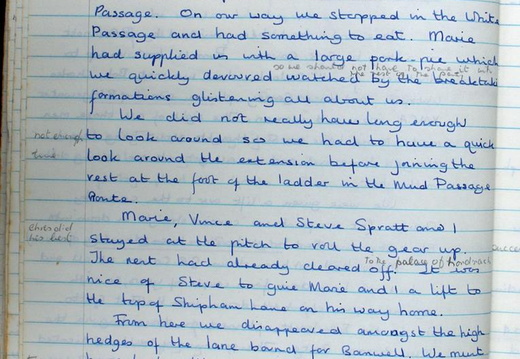 Passage. On our way we stopped in the White
Passage and had something to eat. Marie
had supplied us with a large pork-pie which
so we should not have to share it with
the rest of the party
we quickly devoured watched by the breaktaki
formations glistening all about us.
We did not really have long enough
not enough
to look around so we had to have a quick
time
look around the extension before joining the
rest at the foot of the ladder in the Mud Passage
Route.
Marie, Vince and Steve Spratt and I
Chris did
his best
stayed at the pitch to roll the gear up.
to the palay of
The rest had already cleared off. It was
nice of Steve to give Marie and I a lift to
the top of Shipham Lane on his way home.
From here we disappeared amongst the high
hedges of the lane bound for Banwell. We must